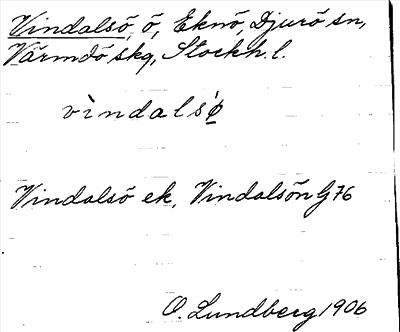 Vindalsö, ö, Eknö, Djurö sn,
Värmdö skg, Stockh. l.
vìndalsˈø
Vindalsö ek, Vindalsön G76
O. Lundberg 1906